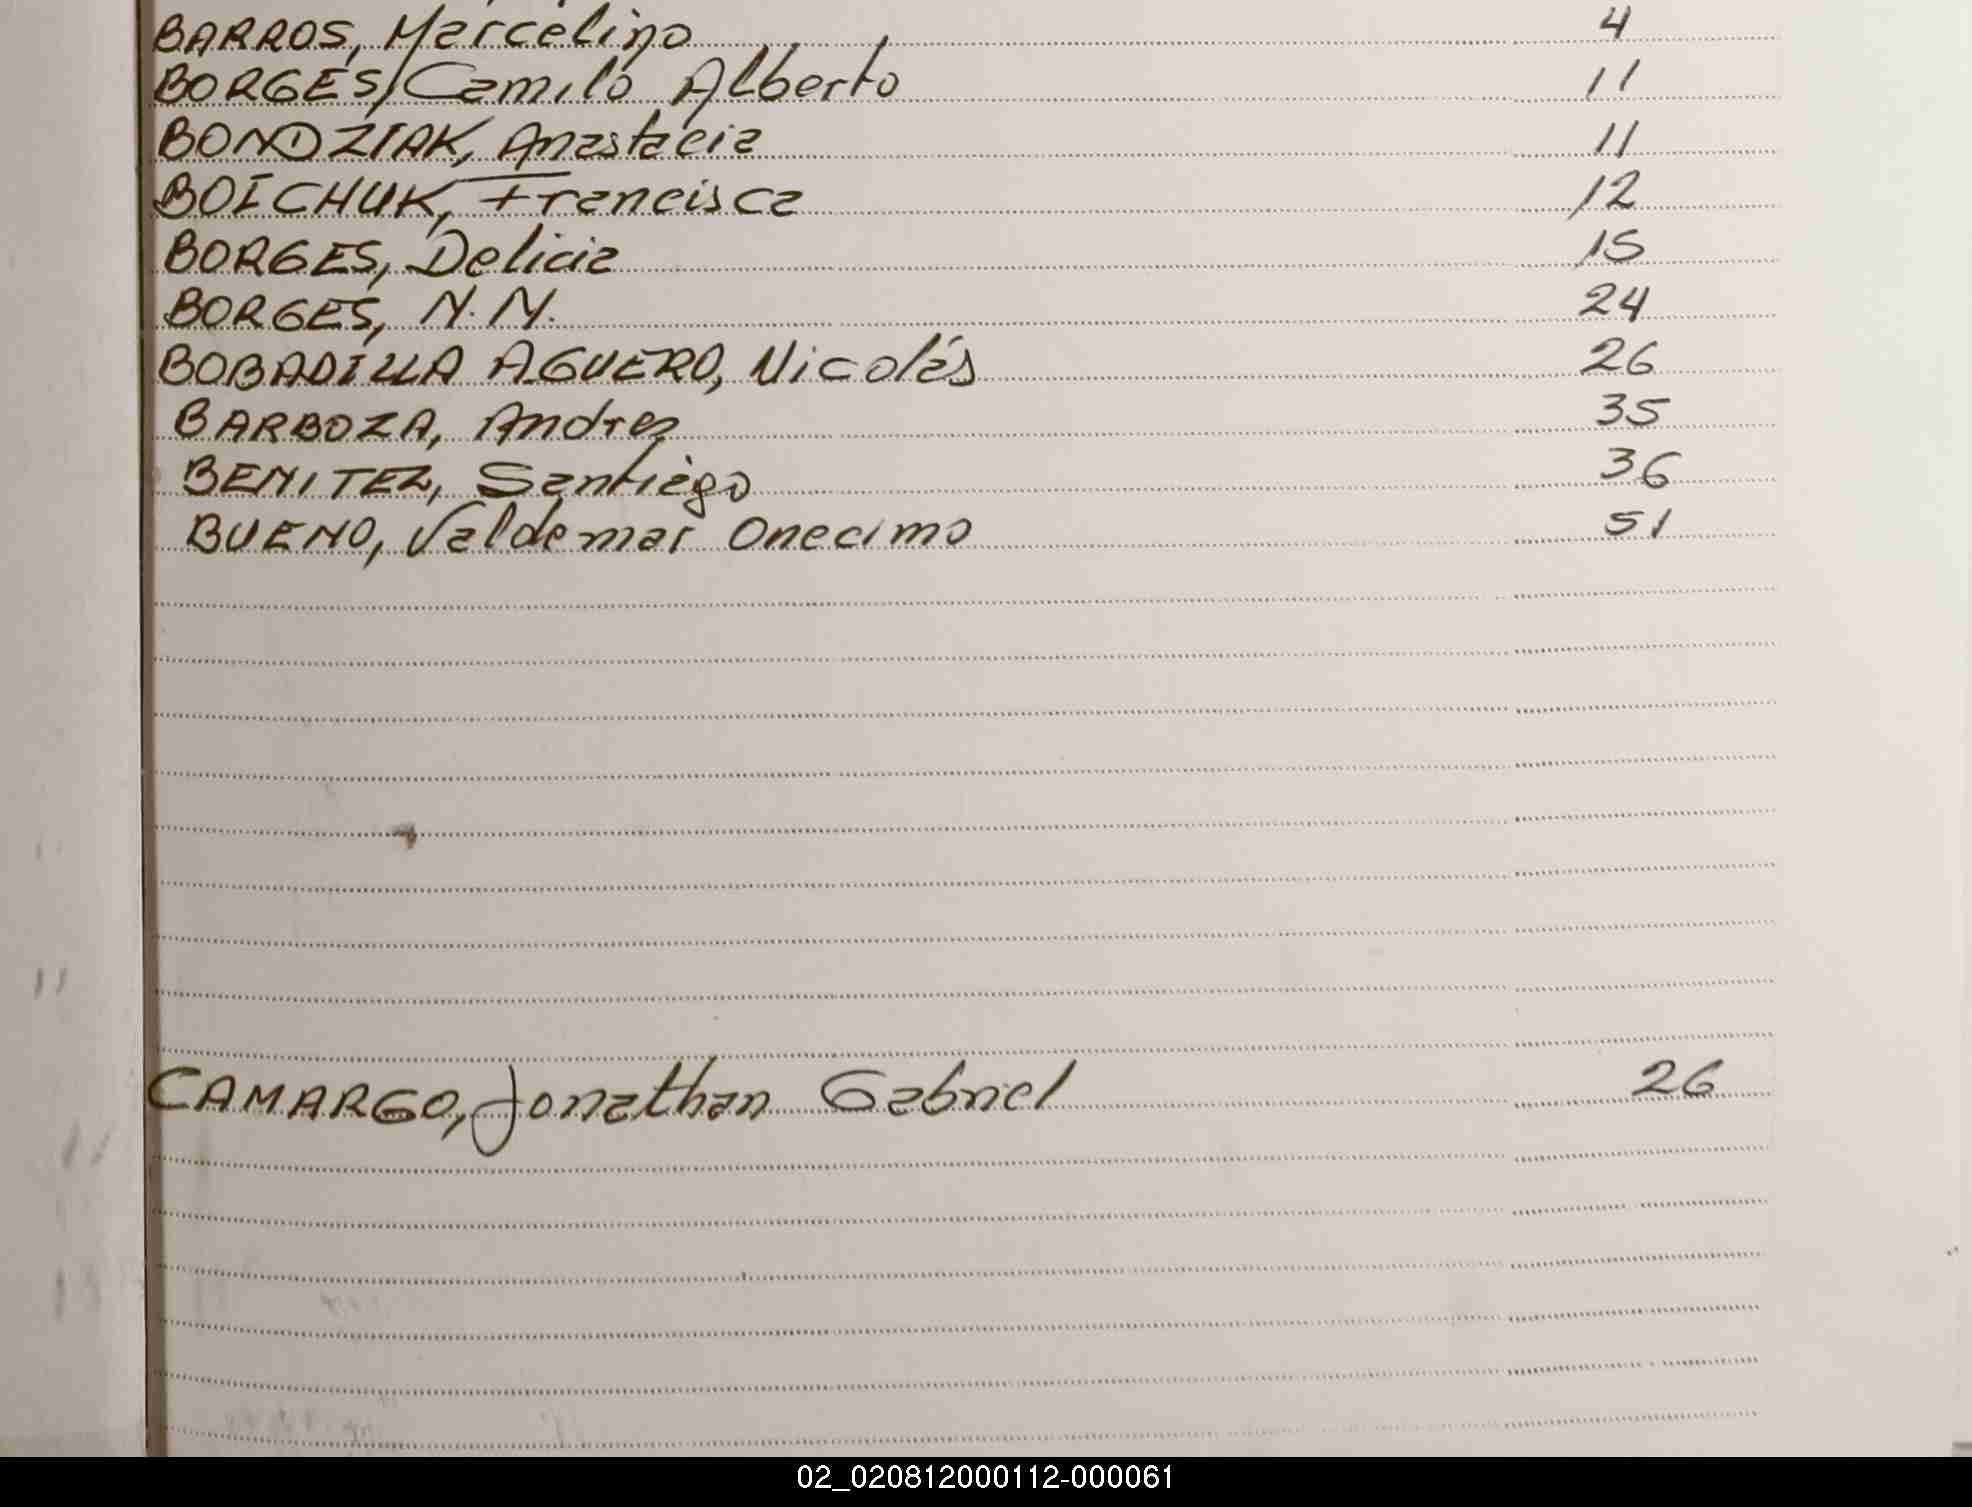 BARROS, Marcelino 4
BORGES, Camilo Alberto 11
BONDZIAK, Anastacia 11
BOICHUK, Francisca 12
BORGES, Delicia 15
BORGES, N.N. 24
BOBADILLA AGUERO, Nicolás 26
BARBOZA, Andres 35
BENITEZ, Santiago 36
BUENO, Valdemar Onecimo 51
CAMARGO, Jonathan Gabriel 26
02_020812000112-000061